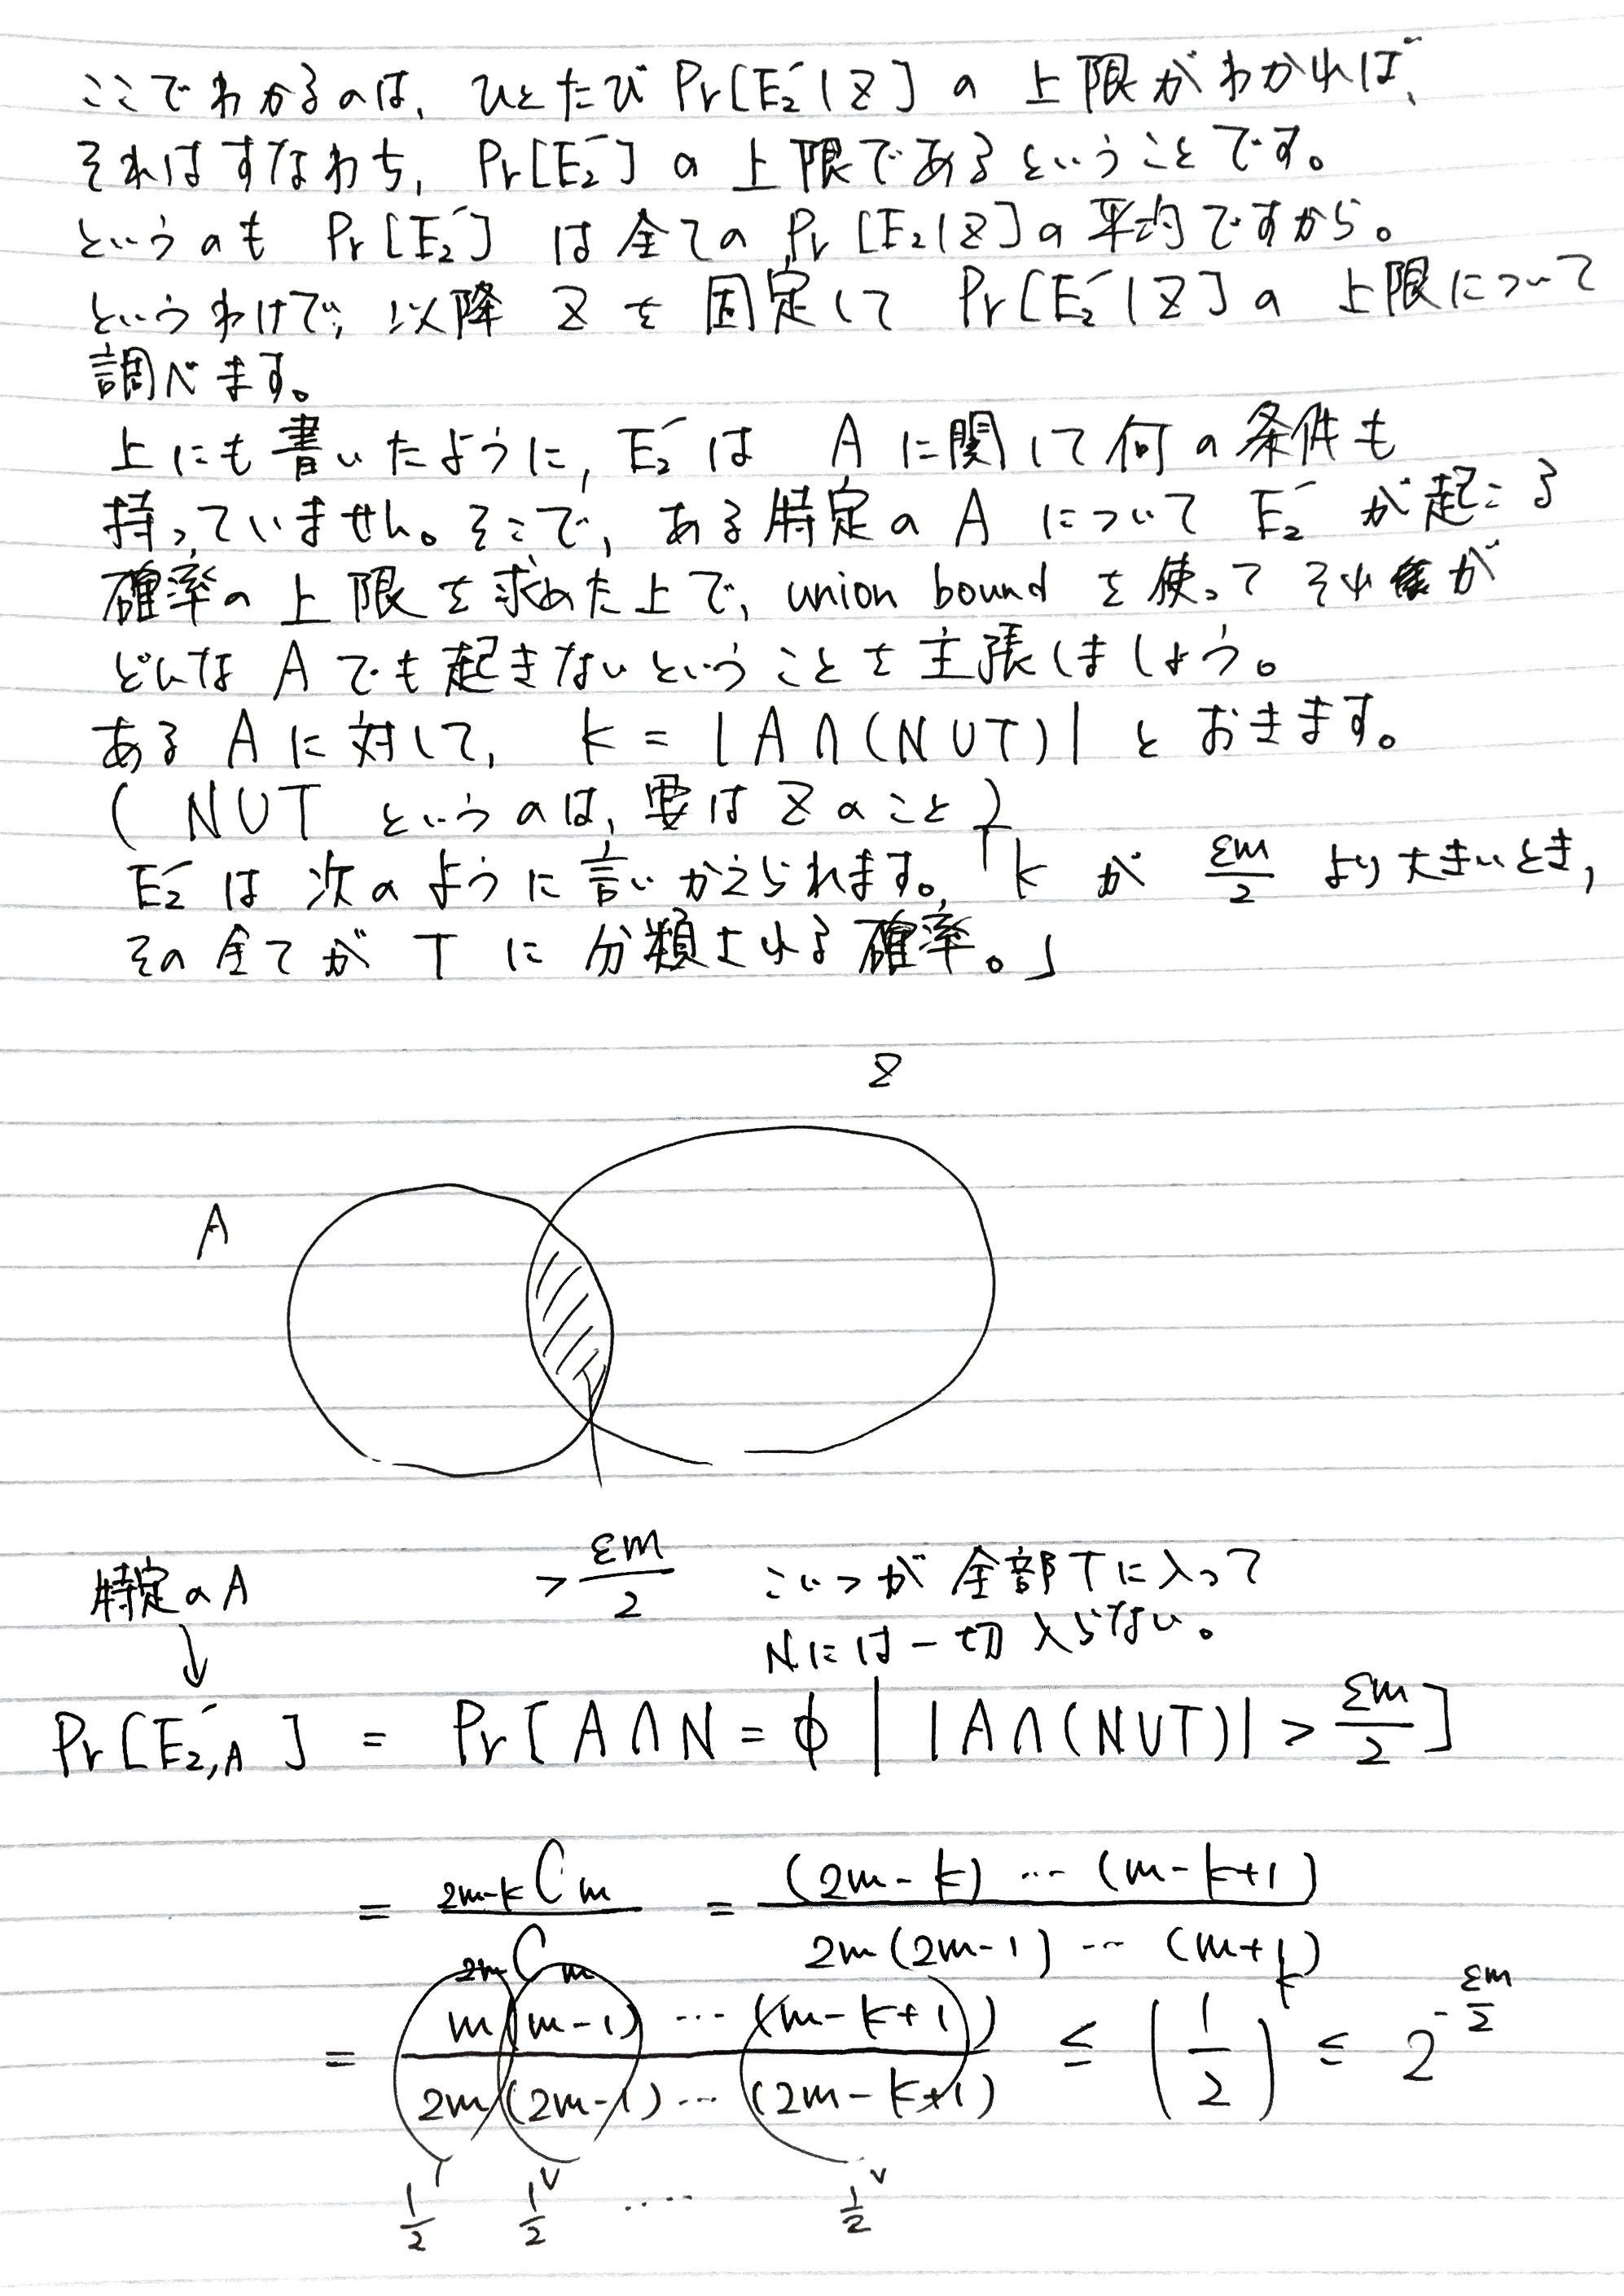 ここでわかるのは, ひとたび Pr[E₂'|Z] の 上限がわかれば、
それはすなわち, Pr[E₂'] の 上限であるということです。
というのも Pr[E₂'] は全ての Pr[E₂|Z]の平均ですから。
というわけで, 以降 Z を 固定して Pr[E₂'|Z] の 上限について
調べます。
上にも書いたように, E₂' は A に関して何の条件も
持っていません。そこで, ある特定の A について E₂' が起こる
確率の 上限を求めた上で, union bound を使って それが
どんな A でも起きないということを主張しましょう。
ある A に対して, k = |A∩(N∪T)| とおきます。
( N∪T というのは, 要は Z のこと )
E₂' は 次のように言いかえられます。「k が εm/2 より大きいとき,
その全てが T に 分類される確率。」
Z
A
> εm/2 こいつが 全部Tに入って
Nには一切入らない。
特定のA
↓
Pr[E₂,A'] = Pr[A∩N=φ | |A∩(N∪T)| > εm/2]
= 2m-kCm / 2mCm = (2m-k) … (m-k+1) / 2m(2m-1) … (m+1)
= m(m-1) … (m-k+1) / 2m(2m-1) … (2m-k+1) ≤ (1/2)^k ≤ 2^(-εm/2)
1/2 1/2 ‥‥ 1/2